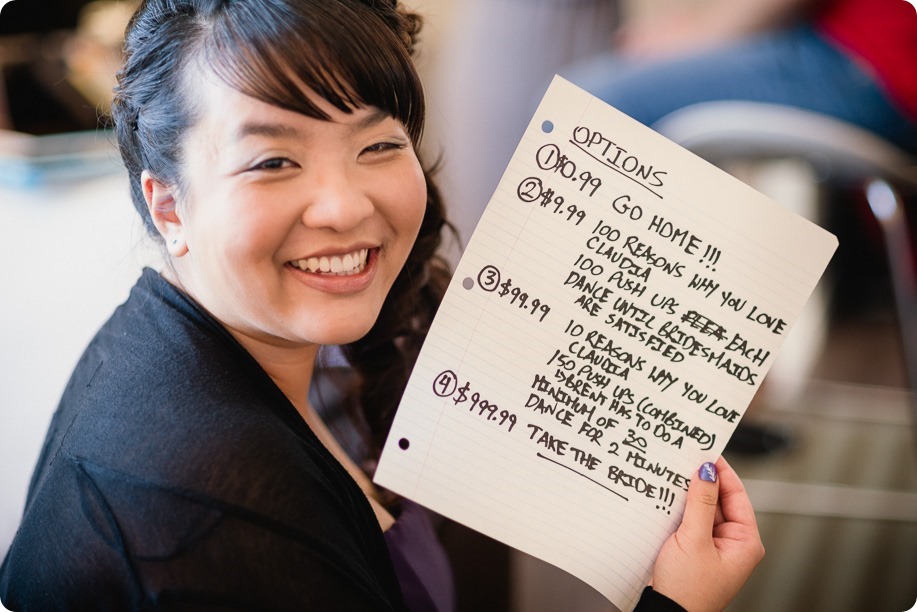 OPTIONS
① $0.99 GO HOME!!!
② $9.99 100 REASONS WHY YOU LOVE
CLAUDIA
100 PUSH UPS EACH
DANCE UNTIL BRIDESMAIDS
ARE SATISFIED
③ $99.99 10 REASONS WHY YOU LOVE
CLAUDIA
150 PUSH UPS (COMBINED)
BRENT HAS TO DO A
MINIMUM OF 30
DANCE FOR 2 MINUTES
④ $999.99 TAKE THE BRIDE!!!